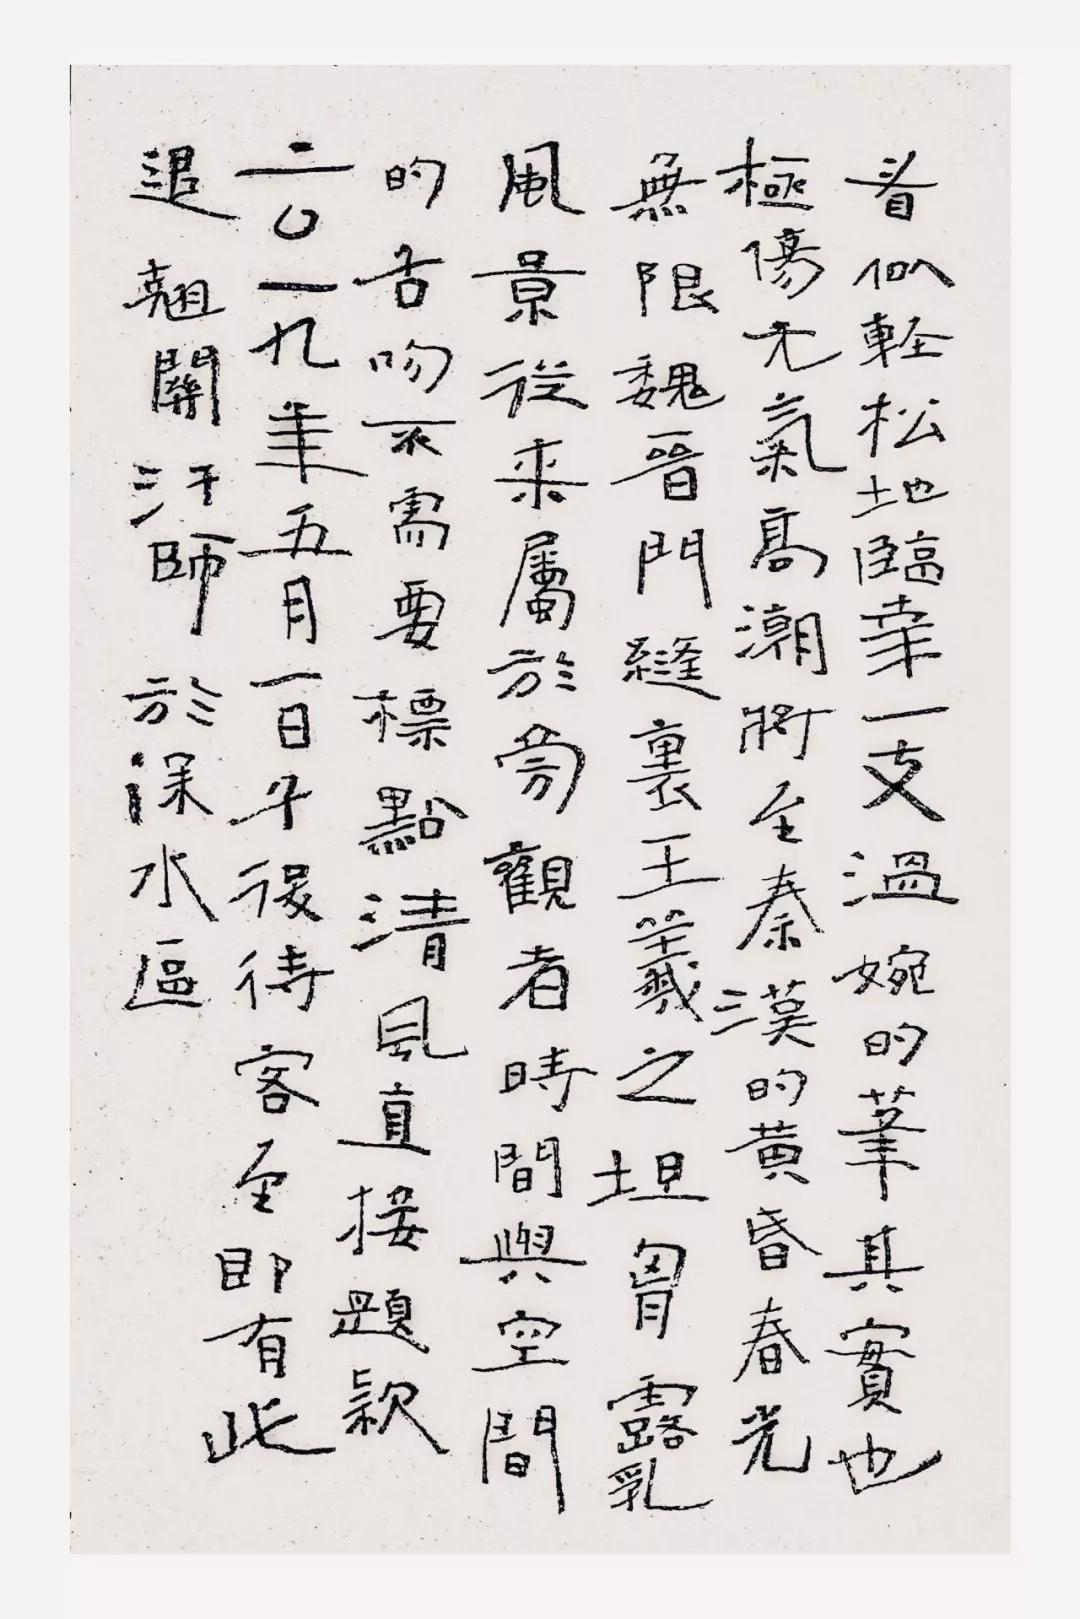 看似輕松地臨幸一支溫婉的筆其實也
極傷元氣高潮將至秦漢的黃昏春光
無限魏晉門縫裏王羲之坦胷露乳
風景從来屬於旁觀者時間與空間
的舌吻不需要標點清風直接題款
二〇一九年五月一日午後待客至即有此
追翹關汗師於深水區